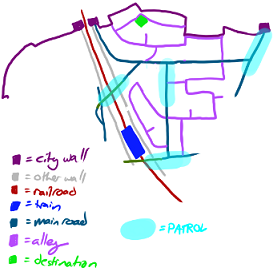 = city wall
= other wall
= railroad
= train
= main road
= alley
= destination
= PATROL